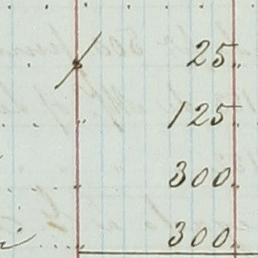 25.
125.
300.
300.